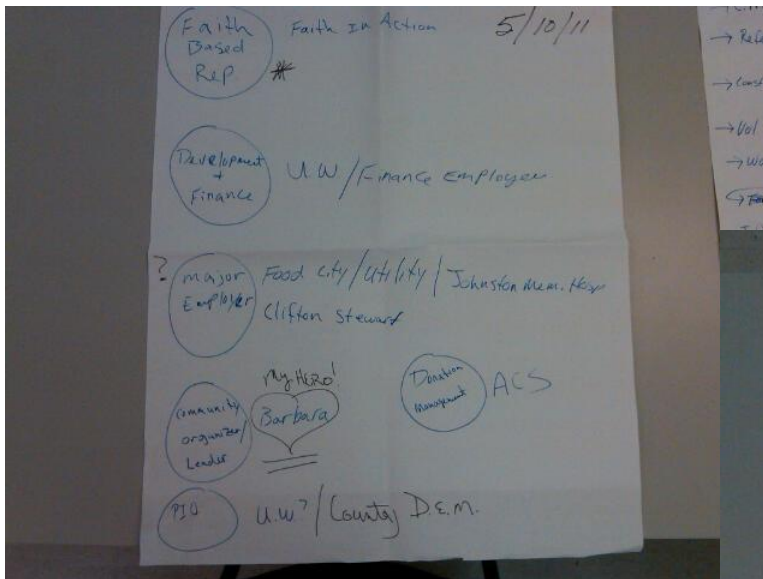 Faith
Based
Rep
Faith In Action
5/10/11
Development
+
Finance
U.W/Finance Employee
?
major
Employer
Food City/Utility/Johnston Mem. Hosp
Clifton Steward
Community
organizer/
Leader
My HERO!
Barbara
Donation
Management
ACS
PIO
U.W?/County D.E.M.
→ Refe
→ Const
→ Vol
→ Wo